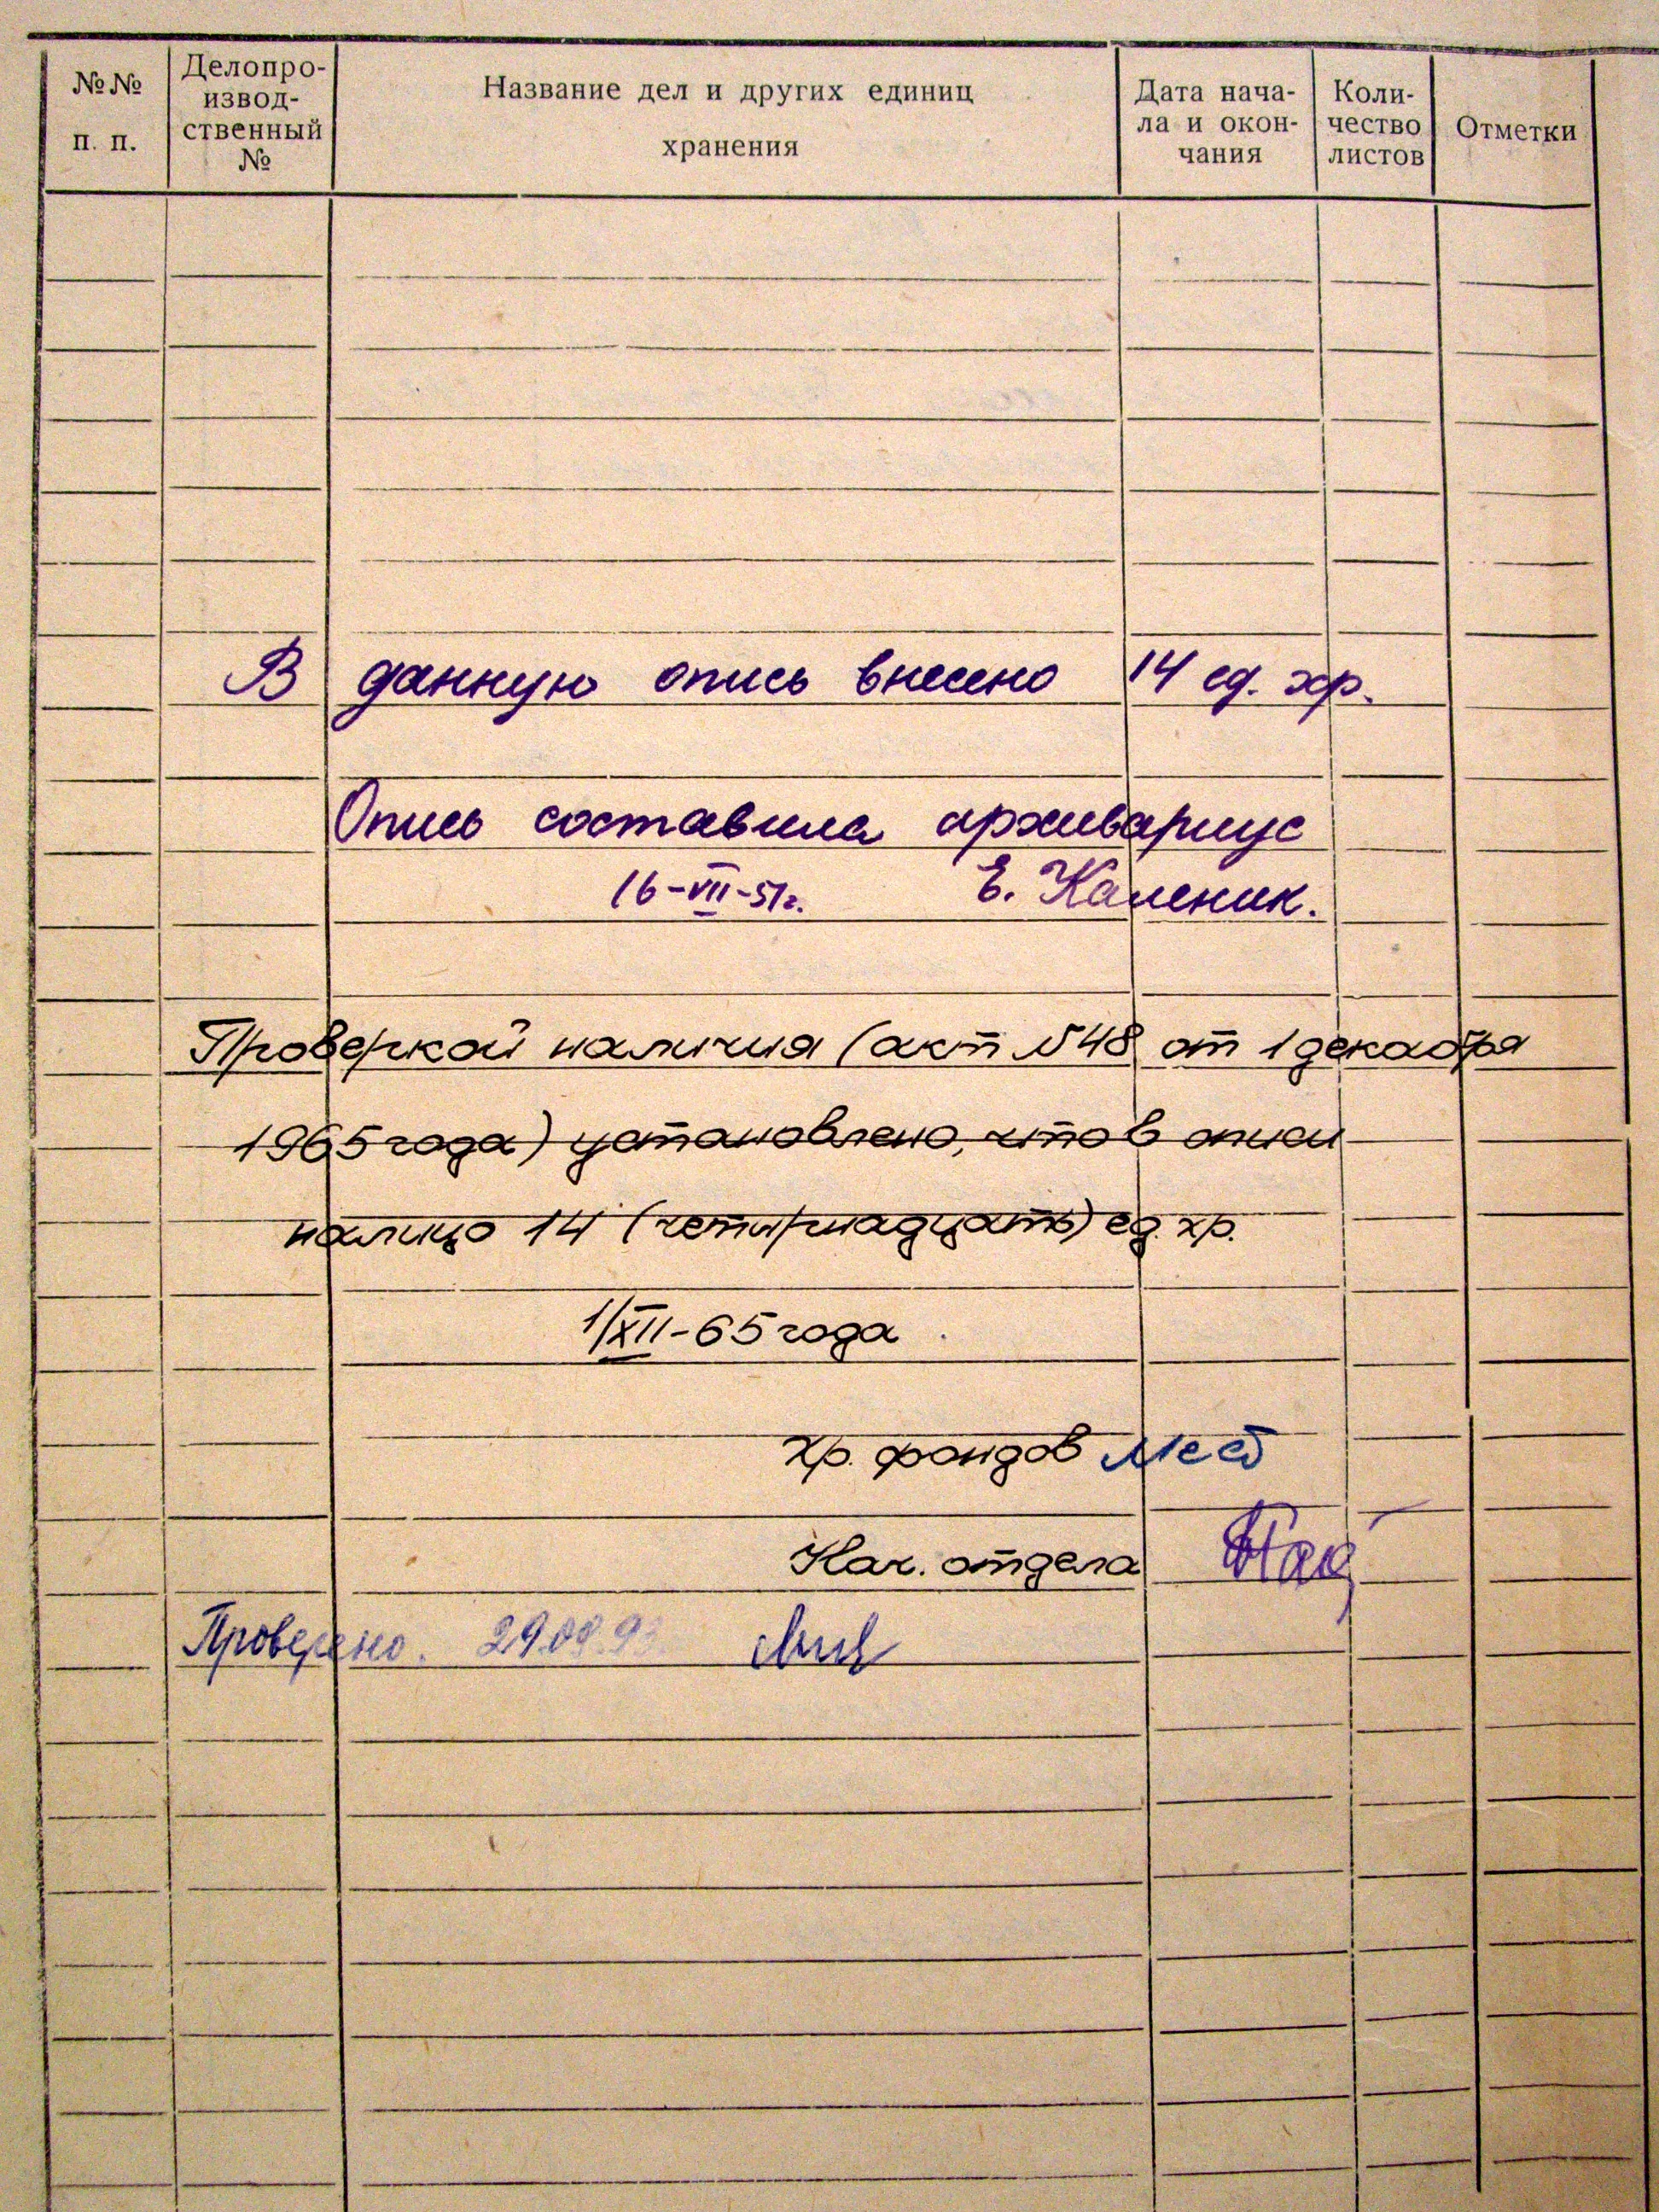 №№ п. п.
Делопро-
извод-
ственный
№
Название дел и других единиц
хранения
Дата нача-
ла и окон-
чания
Коли-
чество
листов
Отметки
В данную опись внесено 14 ед. хр.
Опись составила архивариус
16-VII-51г. Е. Каленик.
Проверкой наличия (акт №48 от 1 декабря
1965 года) установлено, что в описи
налицо 14 (четырнадцать) ед. хр.
1/XII-65 года
Хр. фондов
Нач. отдела
Проверено. 29.09.93.